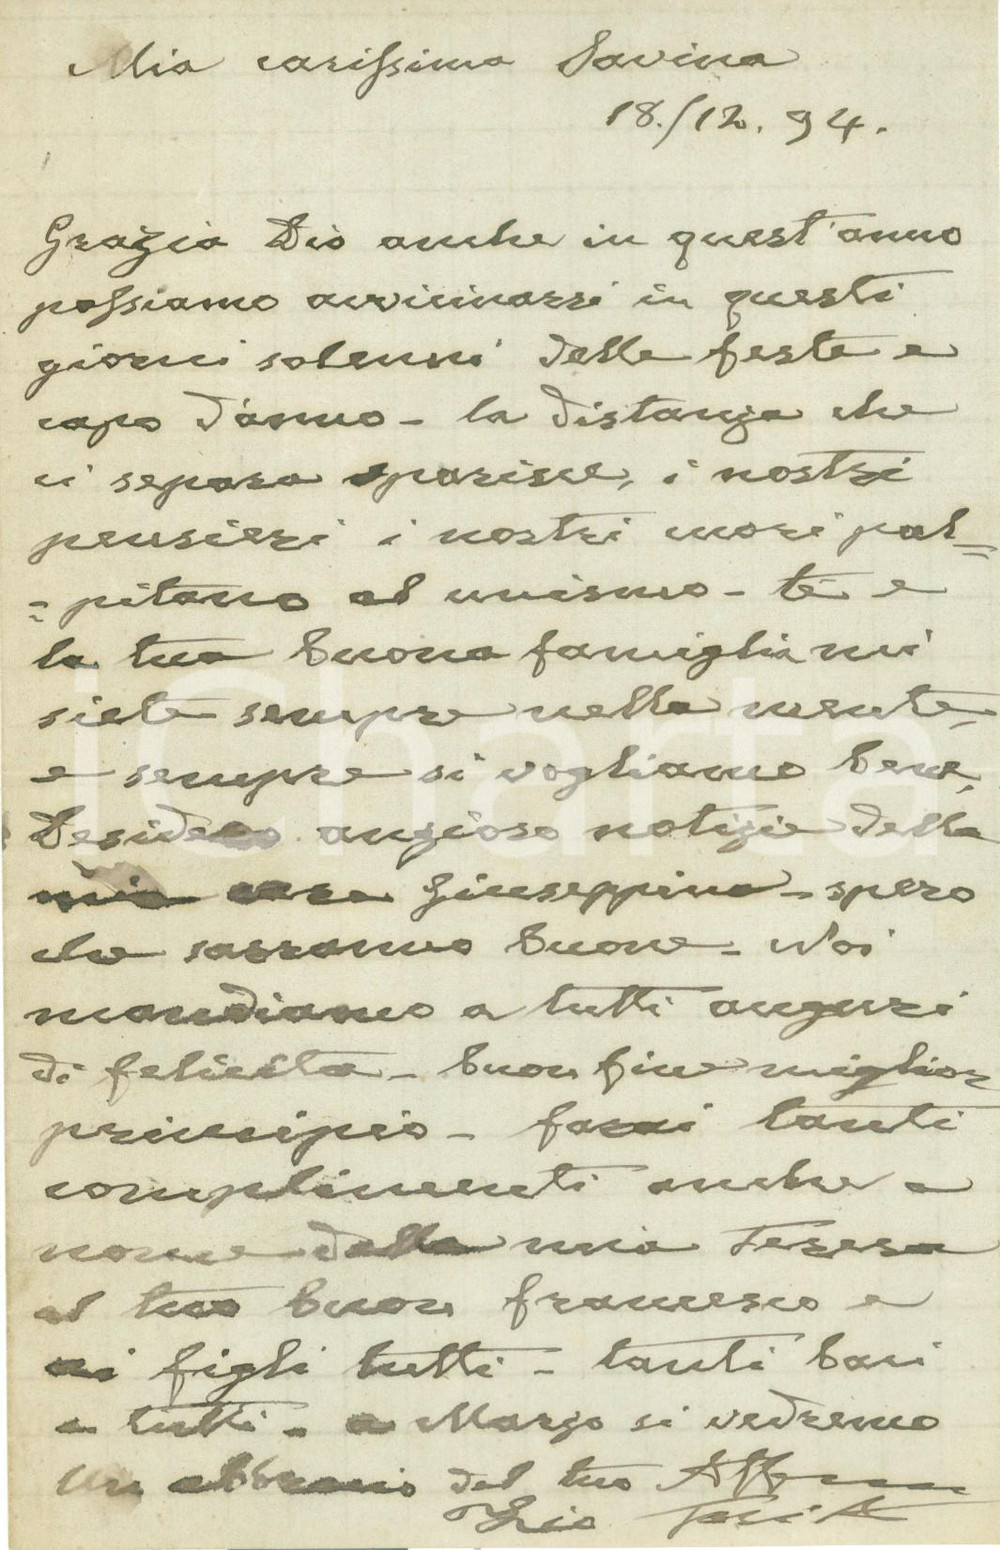 Mia carissima Savina
18./12. 94.
Grazia Dio anche in quest'anno
possiamo avvicinarsi in questi
giorni solenni delle feste e
capo d'anno - la distanza che
ci separa sparisce, i nostri
pensieri i nostri cuori pal=
=pitano al unismo - te e
la tua buona famiglia mi
siete sempre nella mente,
e sempre si vogliamo bene,
Desidero anzioso notizie della
mia cara Giuseppina - spero
che sarranno buone - Noi
mandiamo a tutti auguri
di felicita - buon fine miglior
principio - farai tanti
complimenti anche a
nome della mia Teresa
al tuo buon francesco e
ai figli tutti - tanti baci
a tutti - a Marzo si vedremo
Un abbraccio del tuo Aff
Zio
iCharta